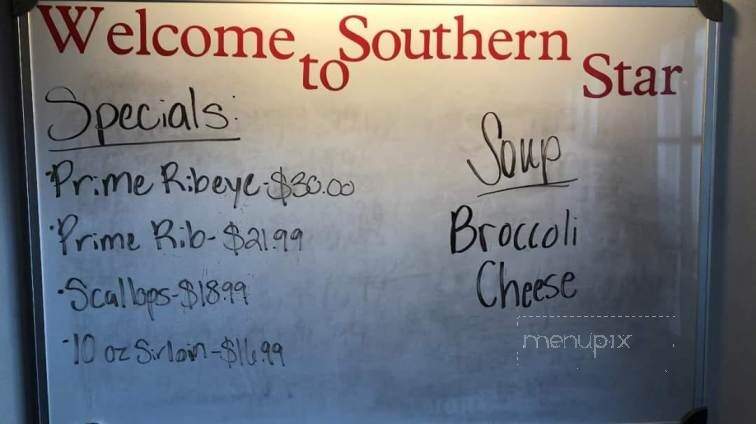 Welcome to Southern Star
Specials:
·Prime Ribeye-$30.00
·Prime Rib-$21.99
·Scallops-$18.99
·10 oz Sirloin-$16.99
Soup
Broccoli
Cheese
menupix